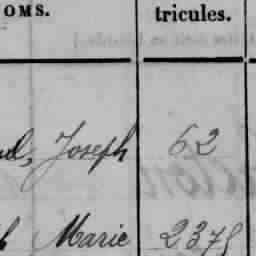 OMS. tricules.
nd, Joseph 62
h Marie 2375